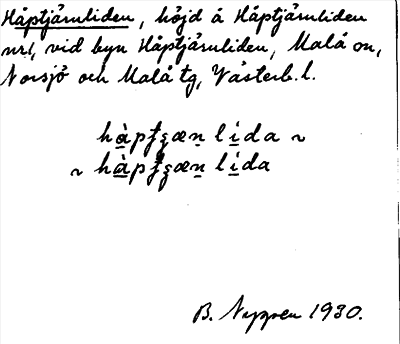 Håptjärnliden, höjd å Håptjärnliden
nr1, vid byn Håptjärnliden, Malå sn,
Norsjö och Malå tg, Västerb. l.
hàpţşæn lída ~
~ hàpţşæn lída
B. Nyppen 1930.